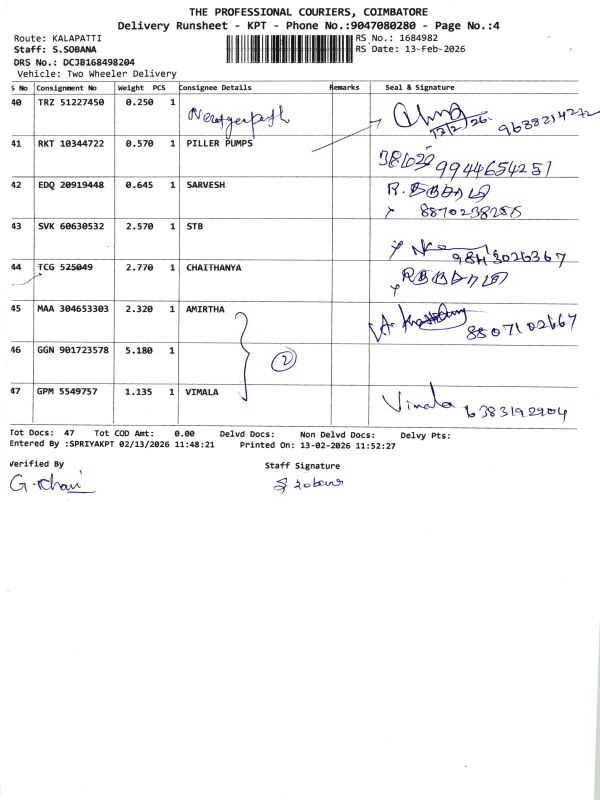 THE PROFESSIONAL COURIERS, COIMBATORE
Delivery Runsheet - KPT - Phone No.:9047080280 - Page No.:4
Route: KALAPATTI
RS No.: 1684982
Staff: S.SOBANA
RS Date: 13-Feb-2026
DRS No.: DCJB168498204
Vehicle: Two Wheeler Delivery
S No Consignment No Weight PCS Consignee Details Remarks Seal & Signature
40 TRZ 51227450 0.250 1
13/2/26.
41 RKT 10344722 0.570 1 PILLER PUMPS
9944654251
42 EDQ 20919448 0.645 1 SARVESH
43 SVK 60630532 2.570 1 STB
44 TCG 525049 2.770 1 CHAITHANYA
45 MAA 304653303 2.320 1 AMIRTHA 8807102667
46 GGN 901723578 5.180 1 2
47 GPM 5549757 1.135 1 VIMALA Vimala 6383192904
Tot Docs: 47 Tot COD Amt: 0.00 Delvd Docs: Non Delvd Docs: Delvy Pts:
Entered By :SPRIYAKPT 02/13/2026 11:48:21 Printed On: 13-02-2026 11:52:27
Verified By Staff Signature